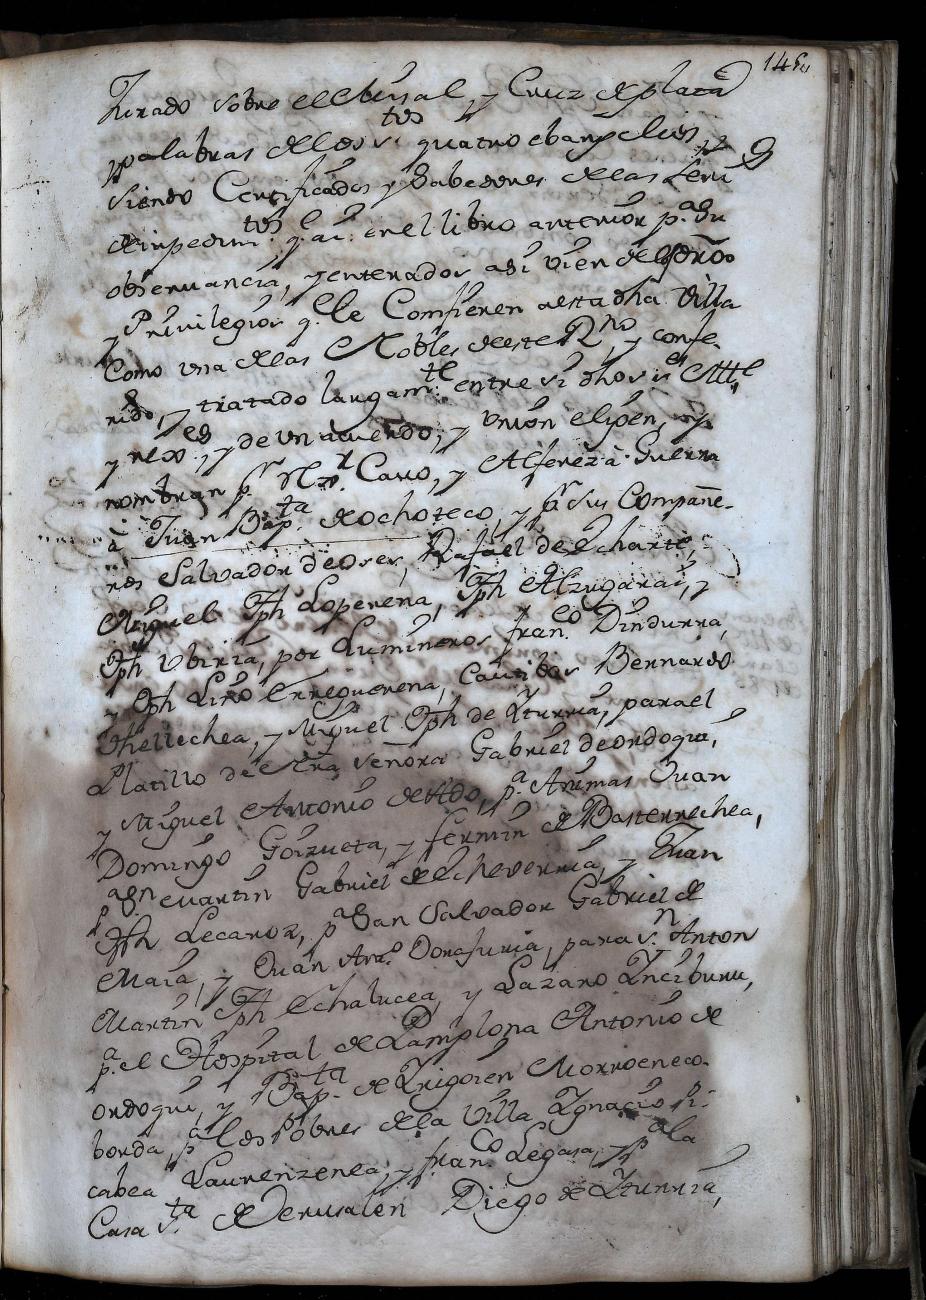 145
Jurado sobre el Misal, y Cruz de plata
y palabras de los s.tos quatro ebangelios, y
siendo Certificados y Sabedores de las Leru
de impedim.tos q. ai en el libro anterior p.a su
obseruancia, y enterados asi vien de los dros
y Priuilegios q. le Comfieren a esta dha Villa
Como vna de las Nobles de este R.no, y confe-
rido, y tratado largam.te entre si dhos s.res Alc.l
y rex.es, y de vn acuerdo, y vnion elijen, y
nombran p.r Cauo, y Alferez a Guerra
a Juan Bap.ta de ochoteco, y p.r sus Compañe-
ros Salvador de oses, Rafael de Echarte,
Miguel Jph Loperena, Jph Alzugarai, y
Jph Vbiria, por Lumineros fran.co Dindurra,
y Jph Lino Erreguerena, Bernardo
Thellechea, y Miguel Jph de Yturria, para el
Platillo de Ntra señora Gabriel de ordoqui,
y Miguel Antonio de Ado, p.a Animas Juan
Domingo Goizueta, y fermin de Basterrechea,
p.a Sn Martin Gabriel de Echeverria, y Juan
Jph Lecaroz, p.a San Salvador Gabriel de
Maia, y Juan Dorafuria, para s.n Anton
Martin Jph Echalucea, y Lazaro Ynciburu,
p.a el Hospital de Pamplona Antonio de
ordoqui, y Bap.ta de Yrigoien Morroeneco-
borda, p.a los Pobres de la Villa Ygnacio Pi-
cabea Laurenzenea, y fran.co Legasa, y p.a la
Casa s.ta de Jerusalen Diego de Yturria,